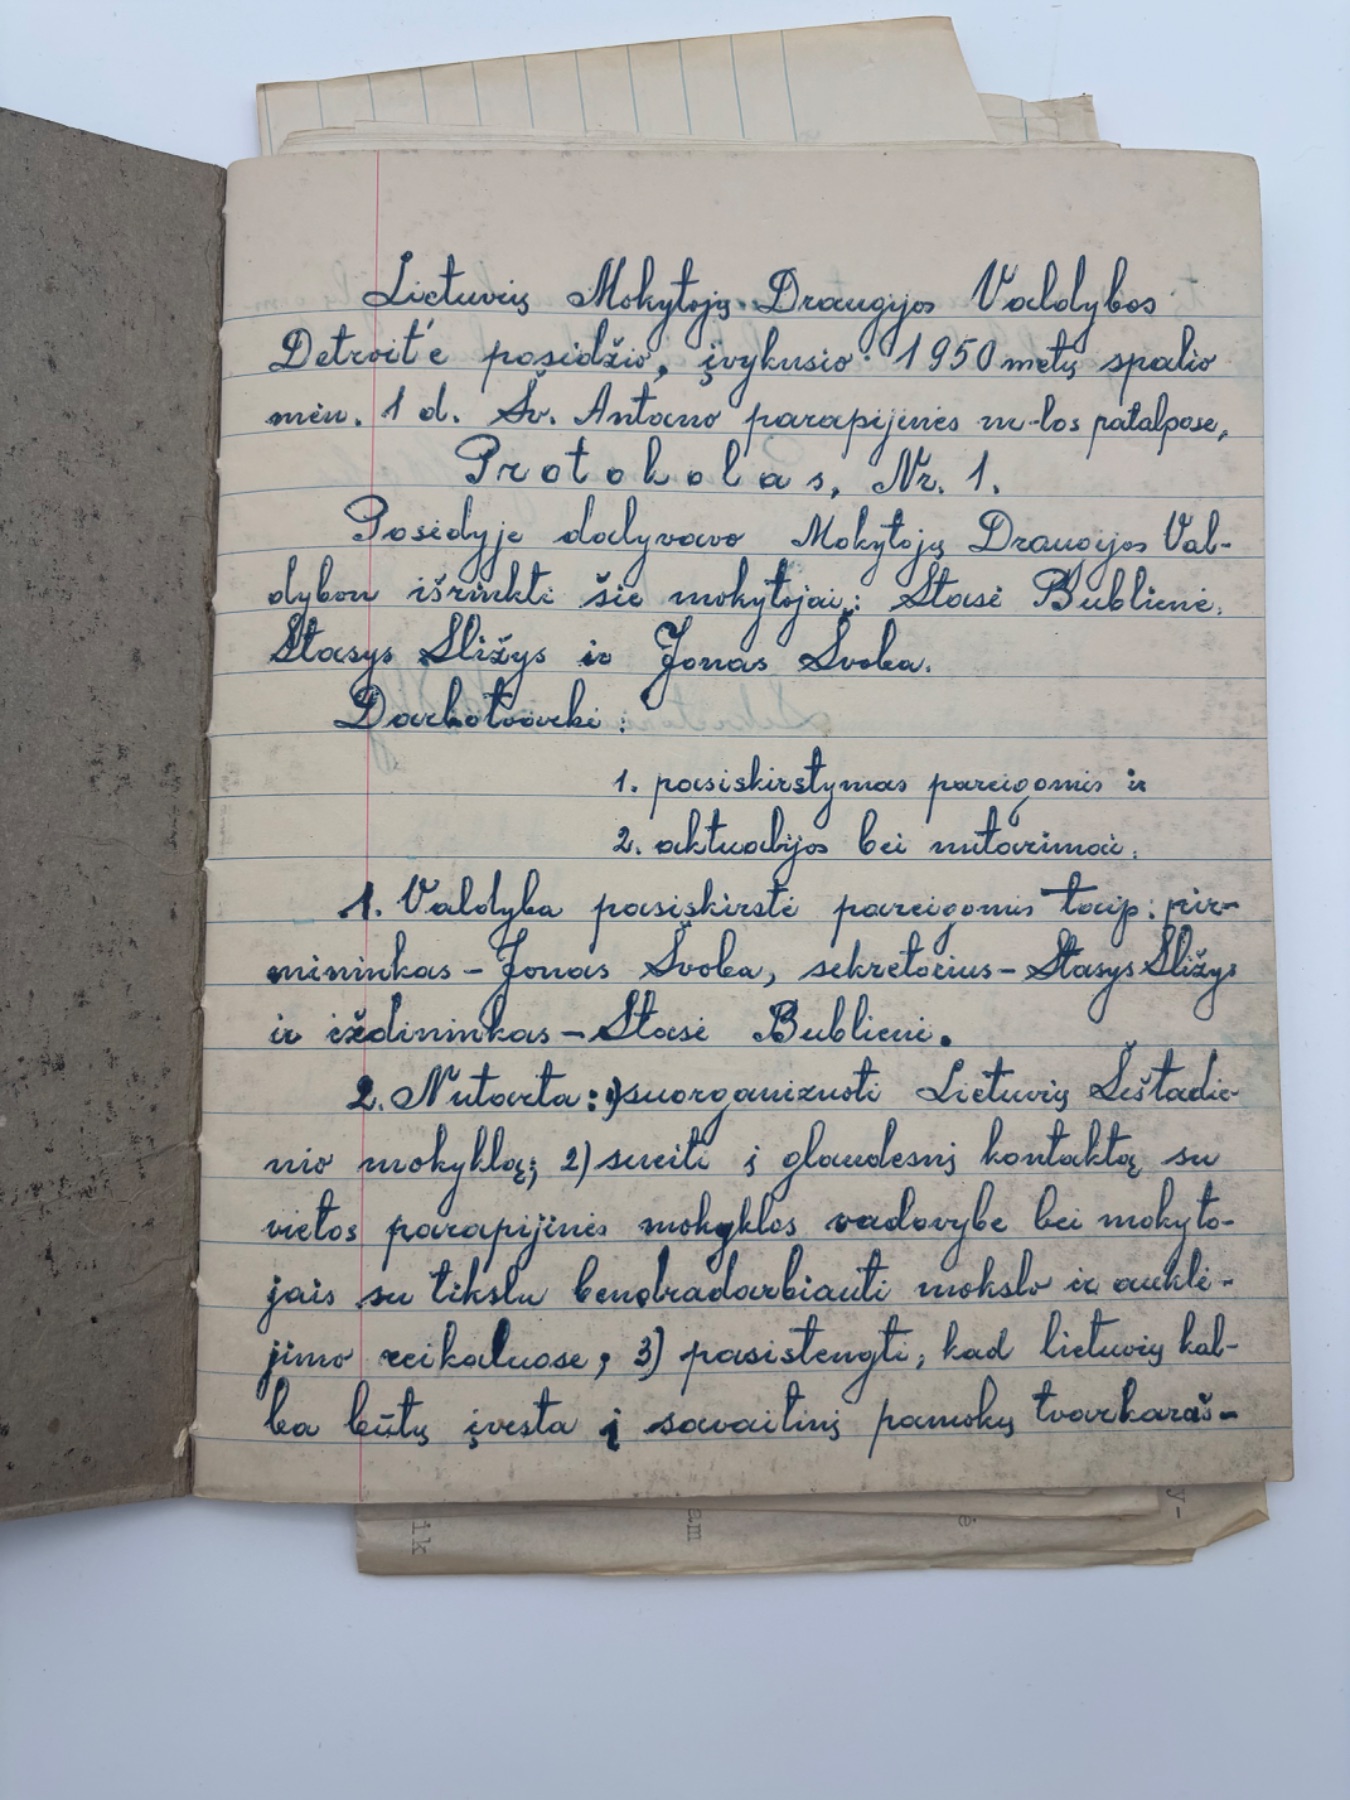 Lietuvių Mokytojų Draugijos Valdybos
Detroit'e posėdžio, įvykusio 1950 metų spalio
mėn. 1 d. Šv. Antano parapijinės m-los patalpose,
Protokolas, Nr. 1.
Posėdyje dalyvavo Mokytojų Draugijos Val-
dybon išrinkti šie mokytojai: Stasė Bublienė,
Stasys Sližys ir Jonas Švoba.
Darbotvarkė:
1. pasiskirstymas pareigomis ir
2. aktualijos bei nutarimai.
1. Valdyba pasiskirstė pareigomis taip: pir-
mininkas – Jonas Švoba, sekretorius – Stasys Sližys
ir iždininkas – Stasė Bublienė.
2. Nutarta: 1) suorganizuoti Lietuvių Šeštadie-
nio mokyklą; 2) sueiti į glaudesnį kontaktą su
vietos parapijinės mokyklos vadovybe bei mokyto-
jais su tikslu bendradarbiauti mokslo ir auklė-
jimo reikaluose; 3) pasistengti, kad lietuvių kal-
ba būtų įvesta į savaitinį pamokų tvarkaraš-
ik
am
ė
y-